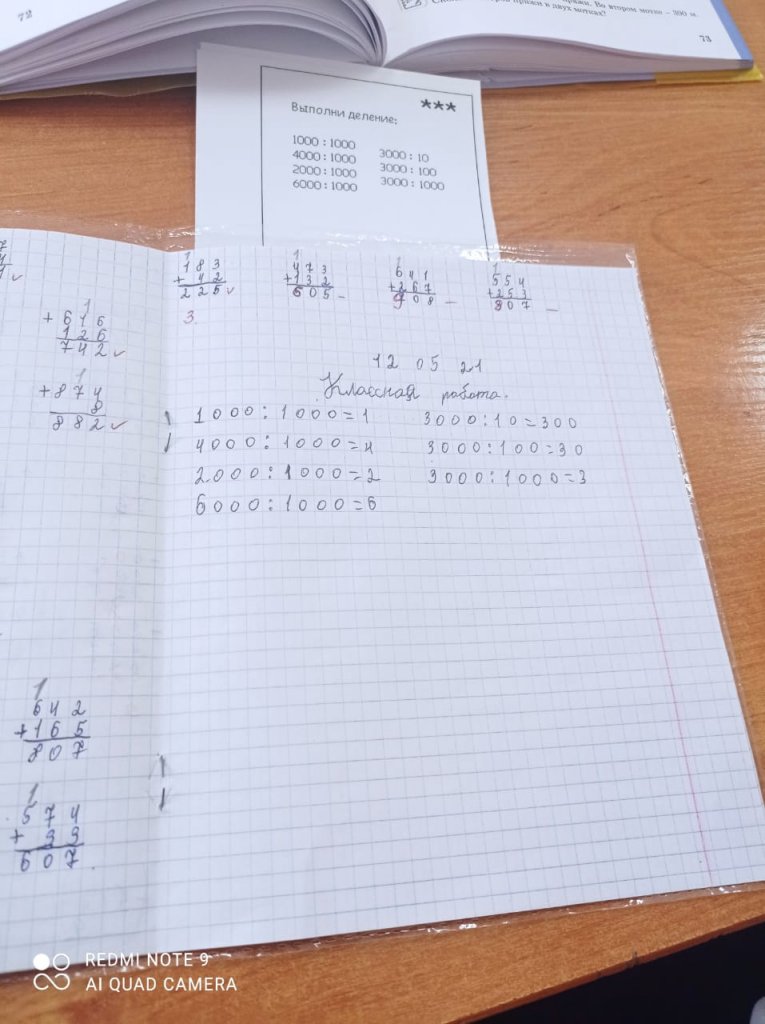 72
пряжи. Во втором мотке – 300 м.
пряжи в двух мотках?
73
***
Выполни деление:
1000 : 1000
4000 : 1000
2000 : 1000
6000 : 1000
3000 : 10
3000 : 100
3000 : 1000
1
183
+ 42
225
1
473
+132
605
1
641
+267
908
1
554
+253
807
3.
1
+616
126
742
1
+874
8
882
12 05 21
Классная работа.
1000:1000=1
4000:1000=4
2000:1000=2
6000:1000=6
3000:10=300
3000:100=30
3000:1000=3
1
642
+165
807
1
574
+ 33
607
REDMI NOTE 9
AI QUAD CAMERA